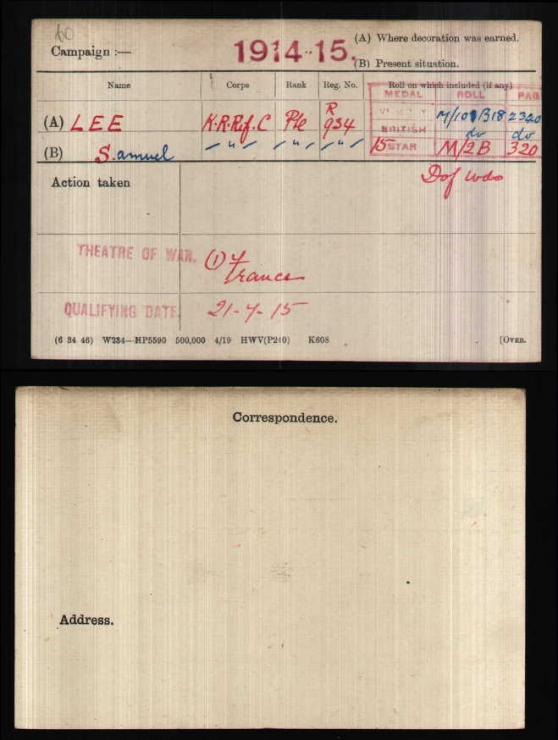 Campaign :—
1914-15.
(A) Where decoration was earned.
(B) Present situation.
Name Corps Rank Reg. No. Roll on which included (if any)
MEDAL ROLL PAGE
(A) LEE K.R.Rif.C Pte R 934
VICTORY M/101B18 2320
BRITISH do do
(B) Samuel — " — — " — — " —
15 STAR M/2B 320
Action taken
D of Wds
THEATRE OF WAR. (1) France
QUALIFYING DATE. 21-7-15
(6 34 46) W234—HP5590 500,000 4/19 HWV(P240) K608 [OVER.
Correspondence.
Address.